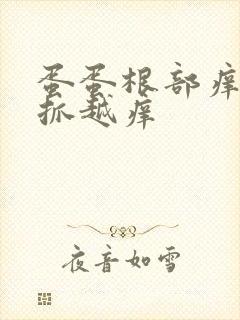 蛋蛋根部痒
抓越痒
夜音如雪